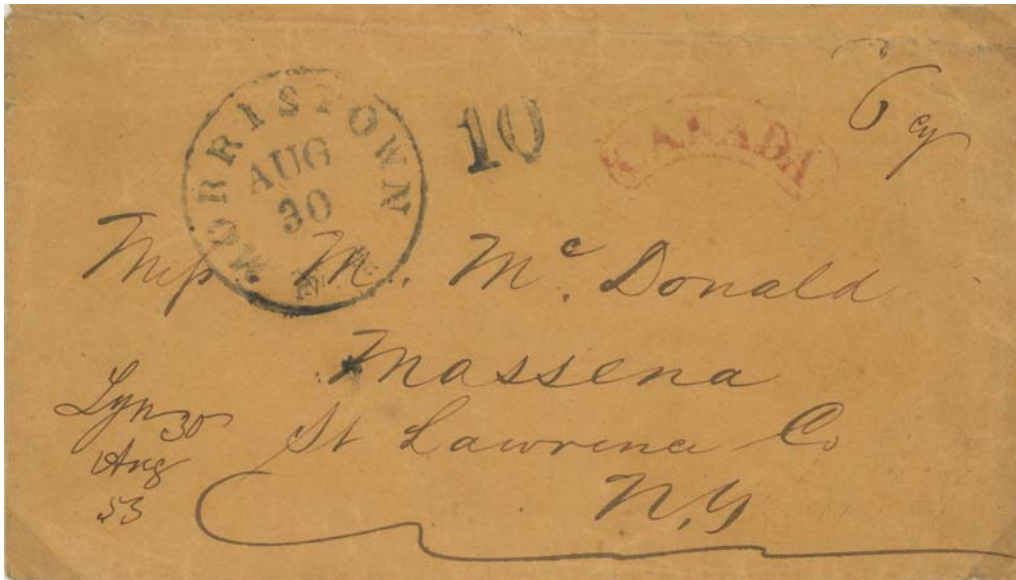 MORRISTOWN
AUG
30
N.Y.
10
CANADA
6 cy
Miss. M. Mc. Donald
Massena
St Lawrence Co
N.Y
Lyn 30
Aug
53